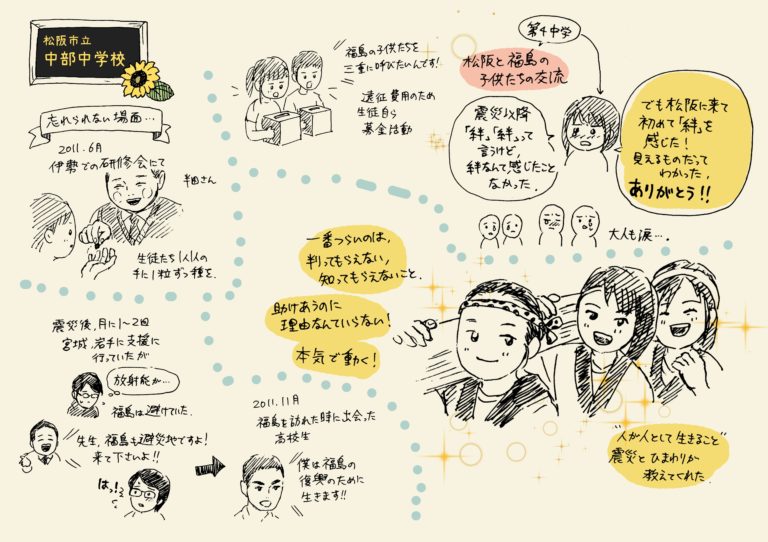 松阪市立
中部中学校
忘れられない場面…
2011.6月
伊勢での研修会にて
半田さん
生徒たち1人1人の
手に1粒ずつ種を。
震災後、月に1〜2回
宮城、岩手に支援に
行っていたが
放射能が…
福島は避けていた。
先生、福島も避災地ですよ!
来て下さいよ!!
はっ!
2011.11月
福島を訪れた時に出会った
高校生
僕は福島の
復興のために
生きます!!
福島の子供たちを
三重に呼びたいんです!
遠征費用のため
生徒自ら
募金活動
一番つらいのは、
判ってもらえない、
知ってもらえないこと。
助けあうのに
理由なんていらない!
本気で動く!
松阪と福島の
子供たちの交流
第4中学
震災以降
「絆」「絆」って
言うけど、
絆なんて感じたこと
なかった。
でも松阪に来て
初めて「絆」を
感じた!
見えるものだって
わかった。
ありがとう!!
大人も涙…。
"人が人として生きること"
震災とひまわりが
教えてくれた。